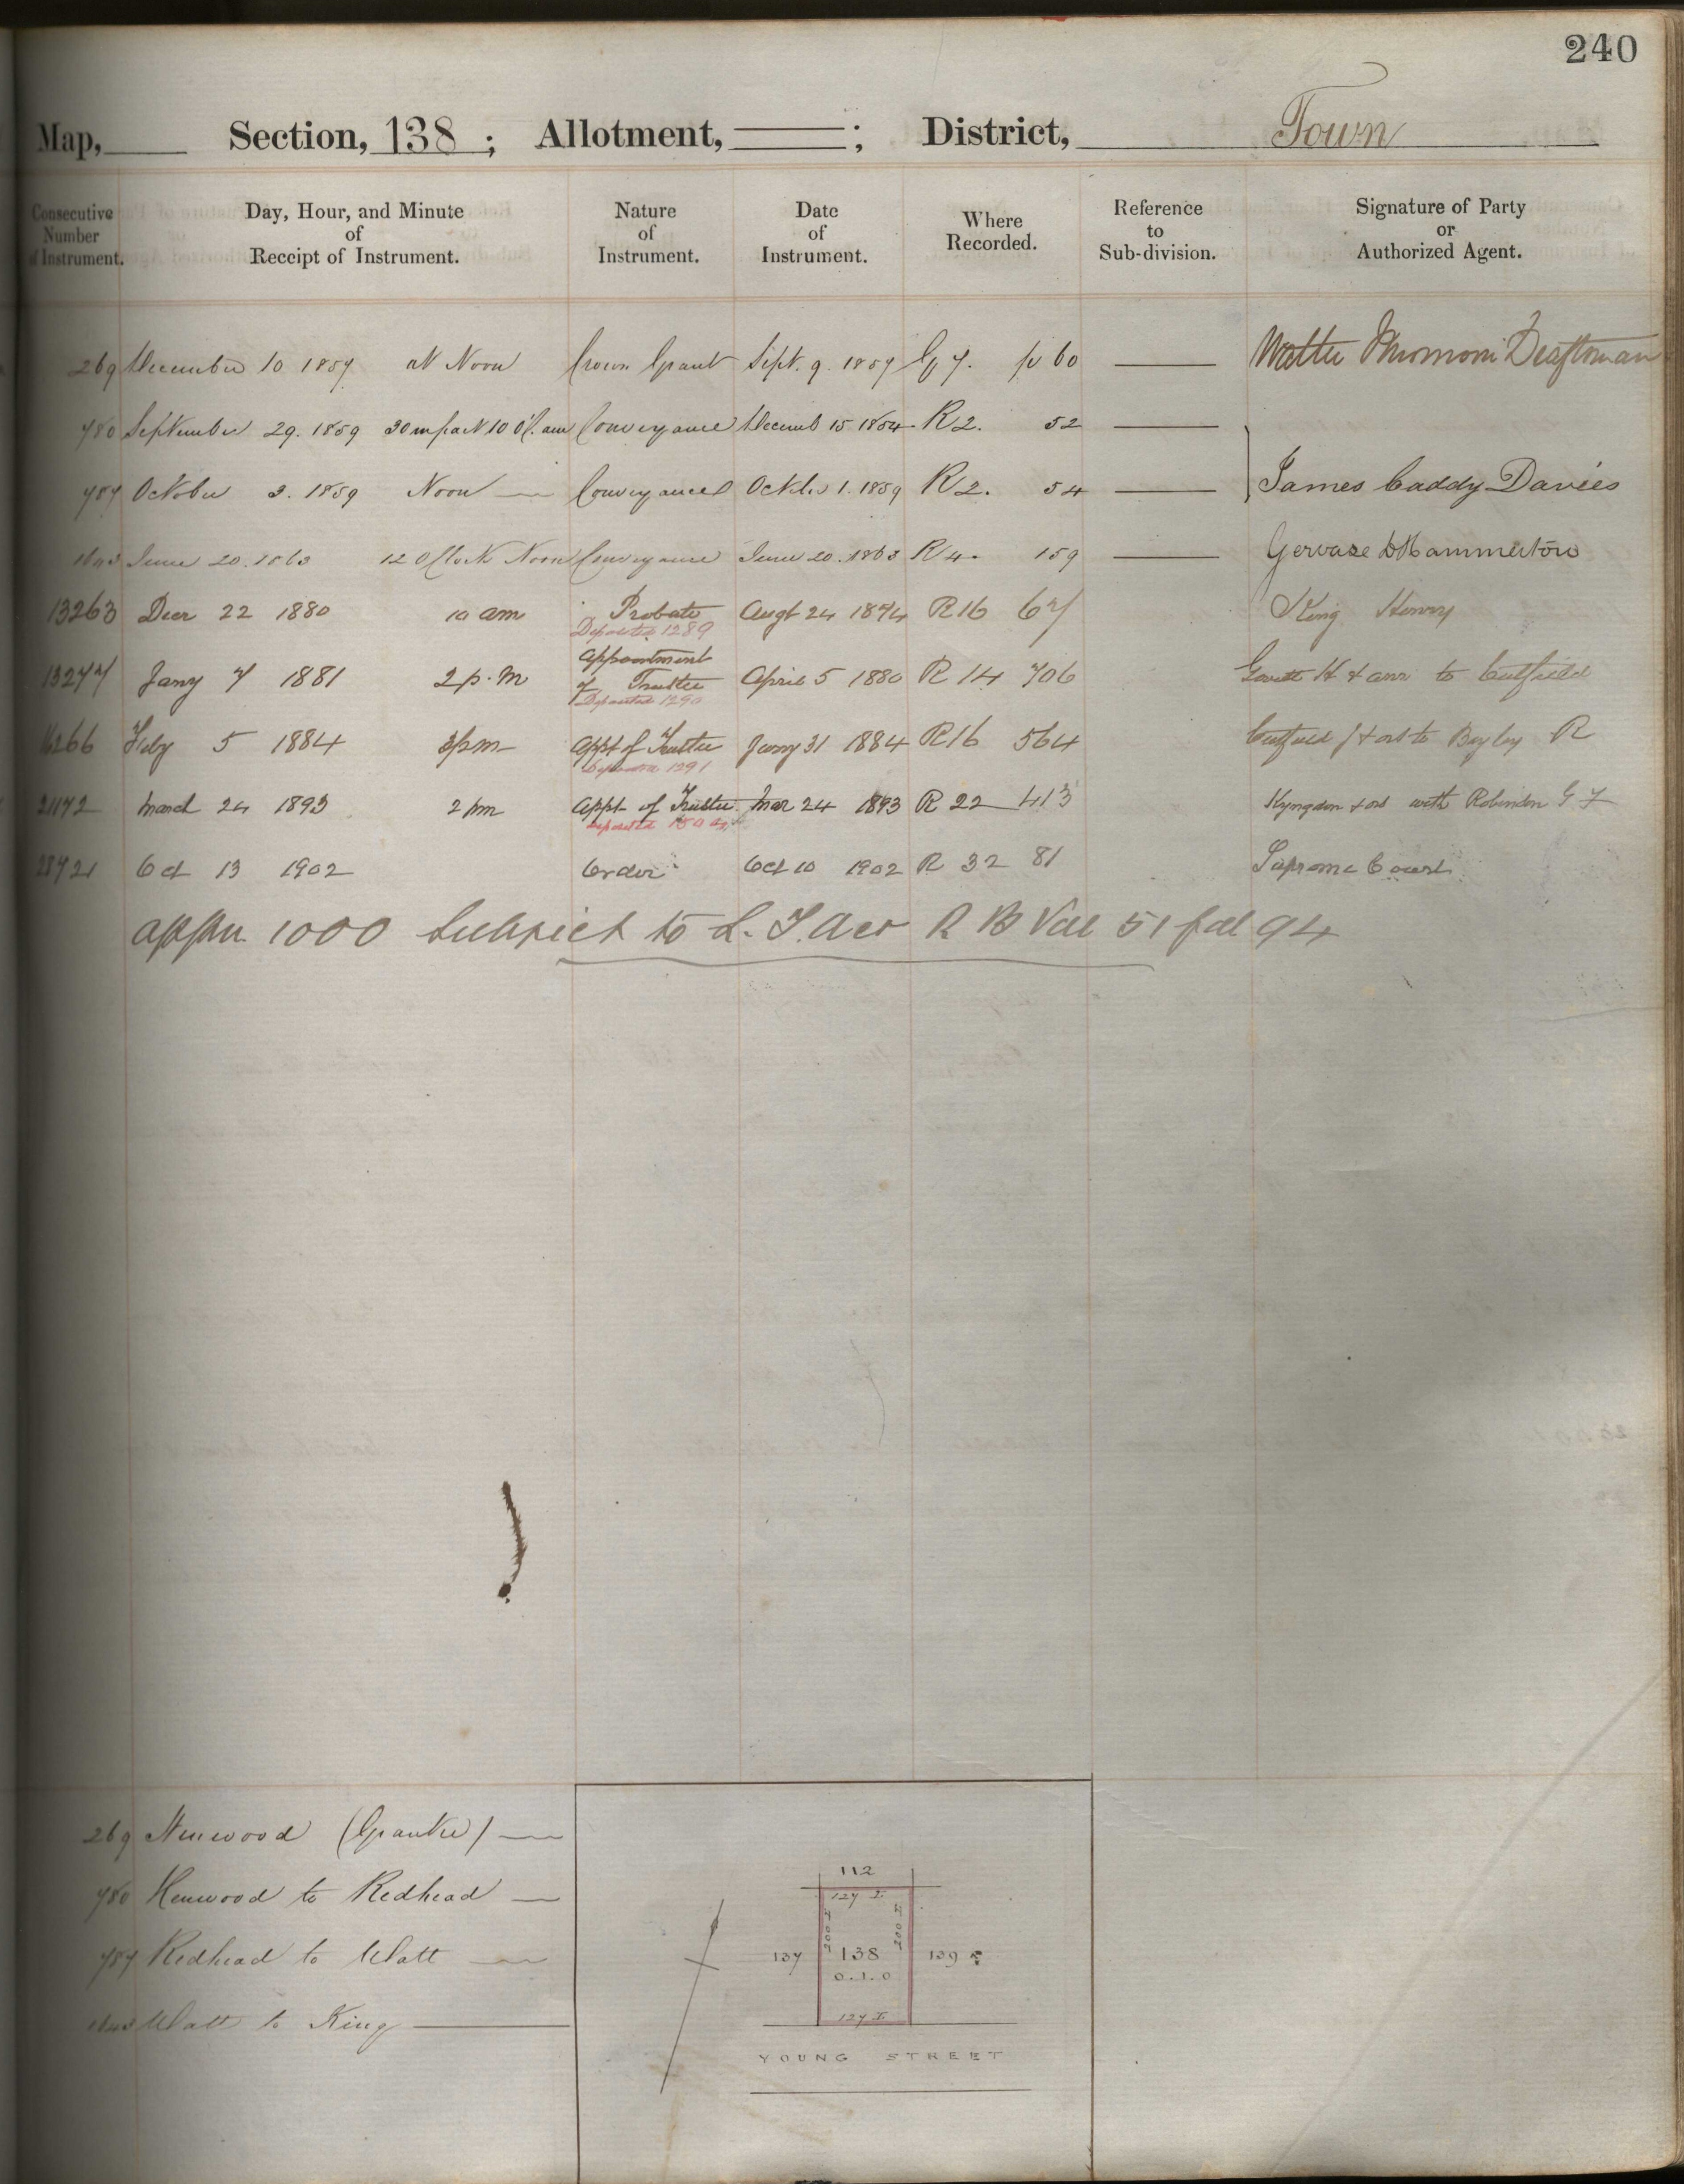 240
Map, Section, 138 ; Allotment, ; District, Town
Consecutive Number of Instrument. Day, Hour, and Minute of Receipt of Instrument. Nature of Instrument. Date of Instrument. Where Recorded. Reference to Sub-division. Signature of Party or Authorized Agent.
269 December 10 1857 at Noon Crown Grant Sept. 9. 1857 G 7. p 60 Draftsman
780 September 29. 1859 30 m past 10 am Conveyance Decemb 15 1854 R 2. 52
787 October 3. 1859 Noon Conveyance October 1. 1859 R 2. 54 James Caddy Davies
June 20. 1863 12 O'Clock Noon Conveyance June 20. 1863 R 4. 159 Gervase D Hammerton
13263 Decr 22 1880 10 am Probate Augt 24 1874 R 16 67 King Henry
Deposited 1289
13277 Jany 7 1881 2 p.m Appointment of Trustee April 5 1880 R 14 706 Govett H & anr to Cutfield
Deposited 1290
16266 Feby 5 1884 3 pm Appt of Trustee Jany 31 1884 R 16 564 Cutfield & ors to Bayley R
Deposited 1291
21172 March 24 1893 2 pm Appt of Trustee Mar 24 1893 R 22 413 Kyngdon & ors with Robinson
Deposited
28721 Oct 13 1902 Order Oct 10 1902 R 32 81 Supreme Court
Appn 1000 Subject to L. T. Act R B Vol 51 fol 94
269 Henwood (Grantee)
780 Henwood to Redhead
787 Redhead to Watt
Watt to King
112
127 L
200 L 200 L
137 138 139
0.1.0
127 L
YOUNG STREET